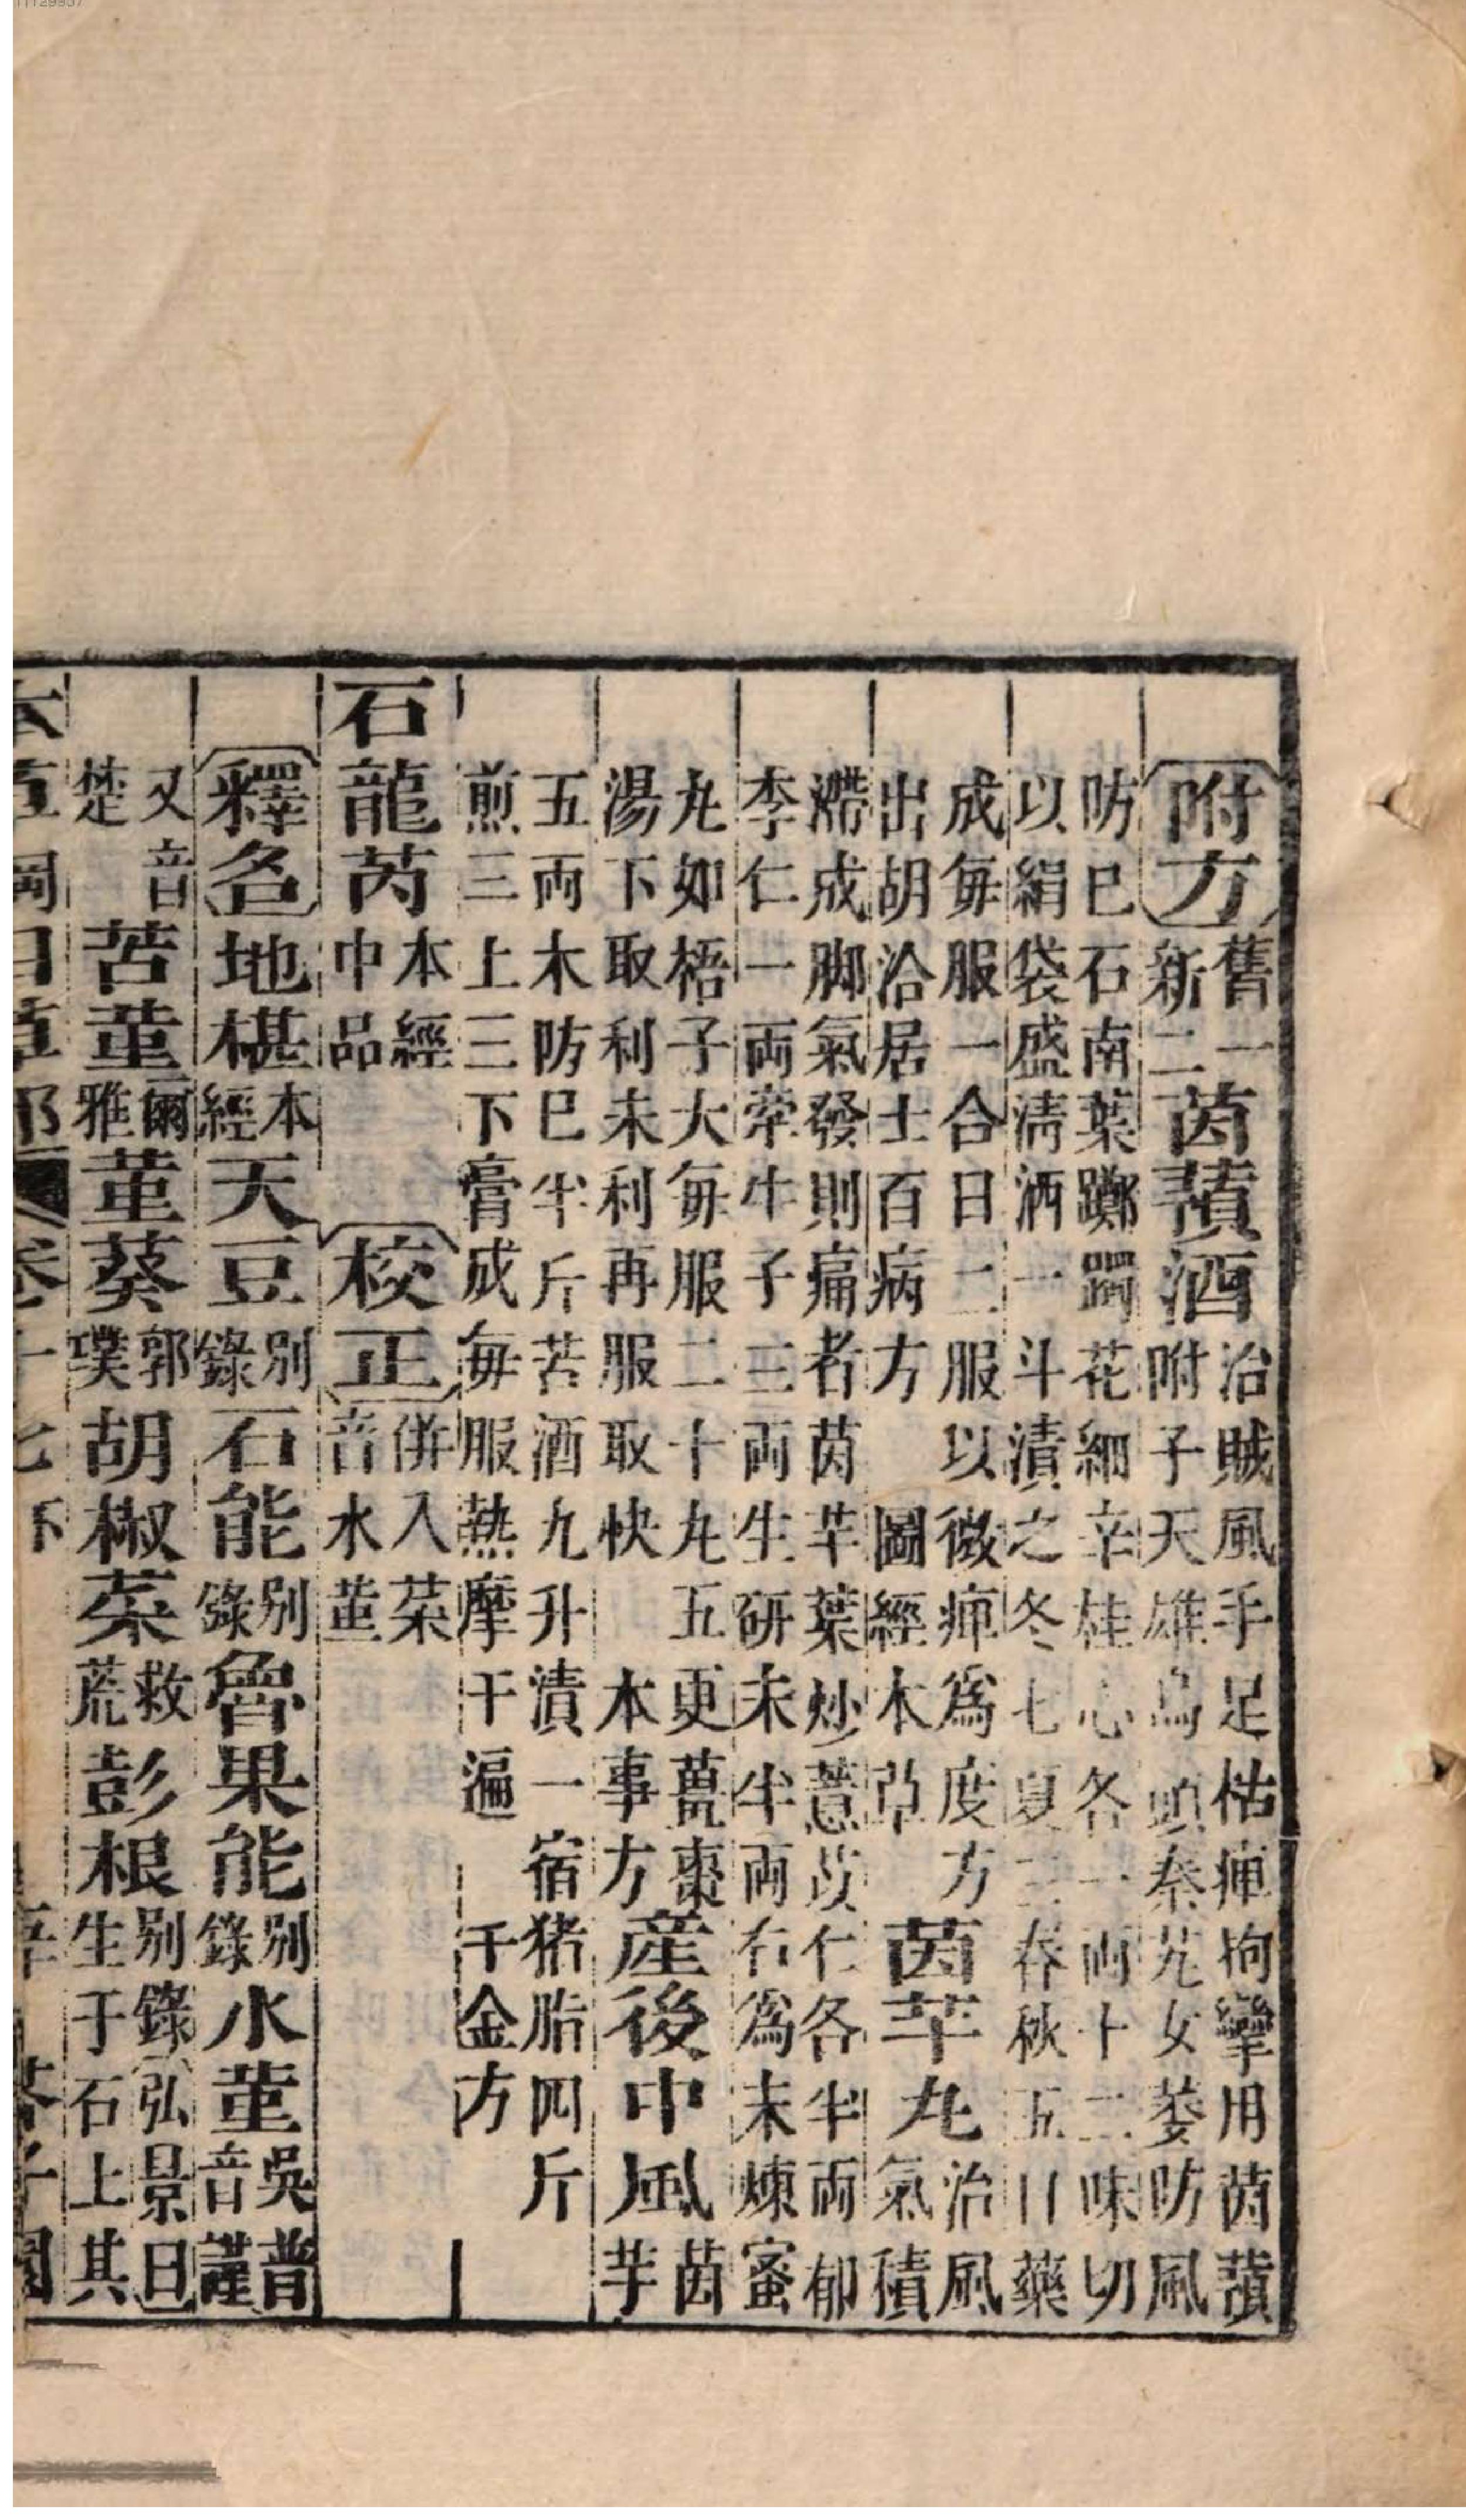 附方舊一新二茵蕷酒治賊風手足枯痺拘攣用茵蕷附子天雄烏頭秦艽女萎防風
防巳石南葉躑躅花細辛桂心各一兩十二味切以絹袋盛淸酒一斗漬之冬七夏三春秋五日藥
成毎服一合日二服以微痺爲度方出胡洽居士百病方 圖經本亞茵芋丸治風氣積
滯成脚氣發則痛者茵芋葉炒薏苡仁各半兩郁李仁一兩牽牛子三兩生研末半兩右爲末煉蜜
丸如梧子大毎服二十丸五更薑棗湯下取利未利再服取快 本事方産後中風茵芋
五兩木防巳半斤苦酒九升漬一宿猪脂四斤煎三上三下膏成毎服熱摩千遍 千金方
石龍芮本經中品 校正併入菜音水堇
釋名地椹本經天豆別錄石能別錄魯果能別錄水堇吳普音謹
又音楚苦堇爾雅堇葵郭璞胡椒菜救荒彭根別錄弘景曰生于石上其